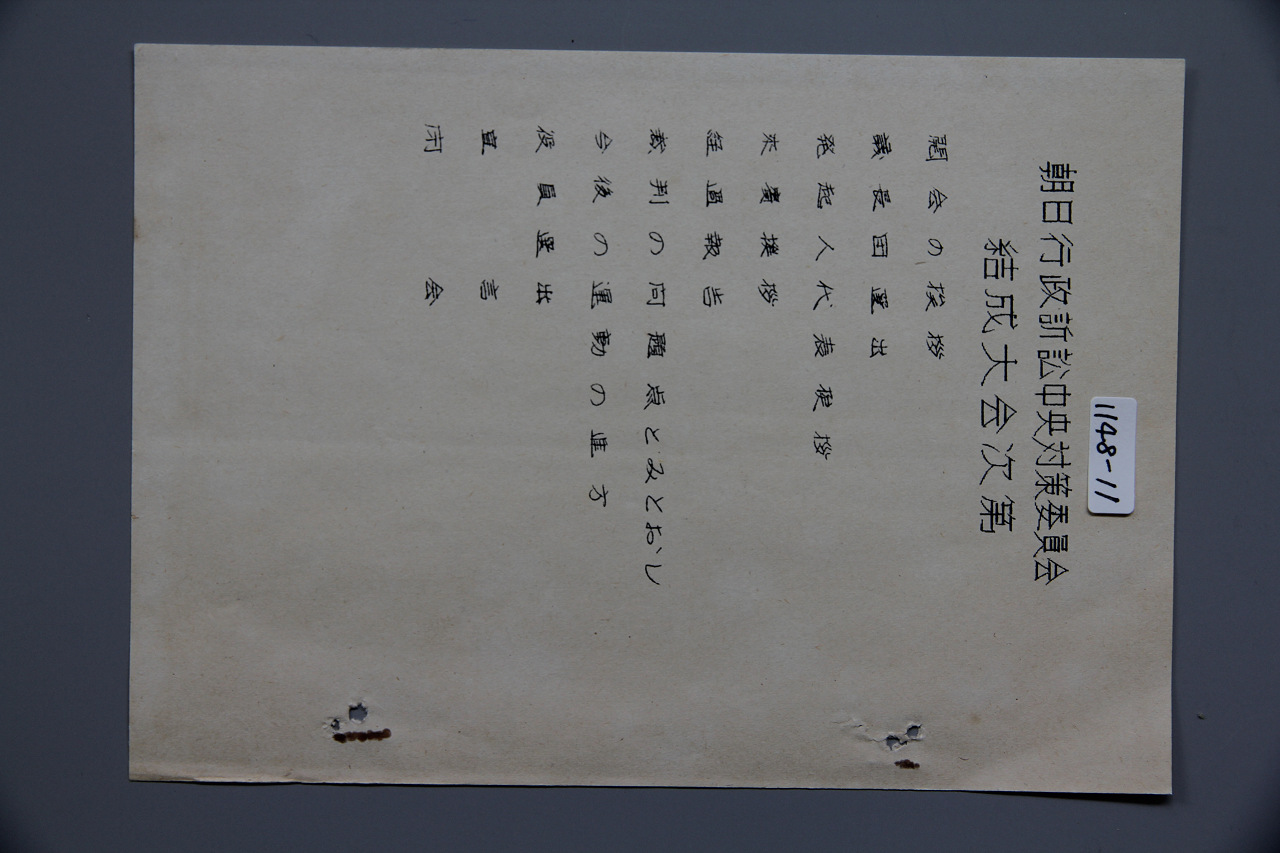 1148-11
朝日行政訴訟中央対策委員会
結成大会次第
開会の挨拶
議長団選出
発起人代表挨拶
来賓挨拶
経過報告
裁判の問題点とみとおし
今後の運動の進方
役員選出
宣言
閉会